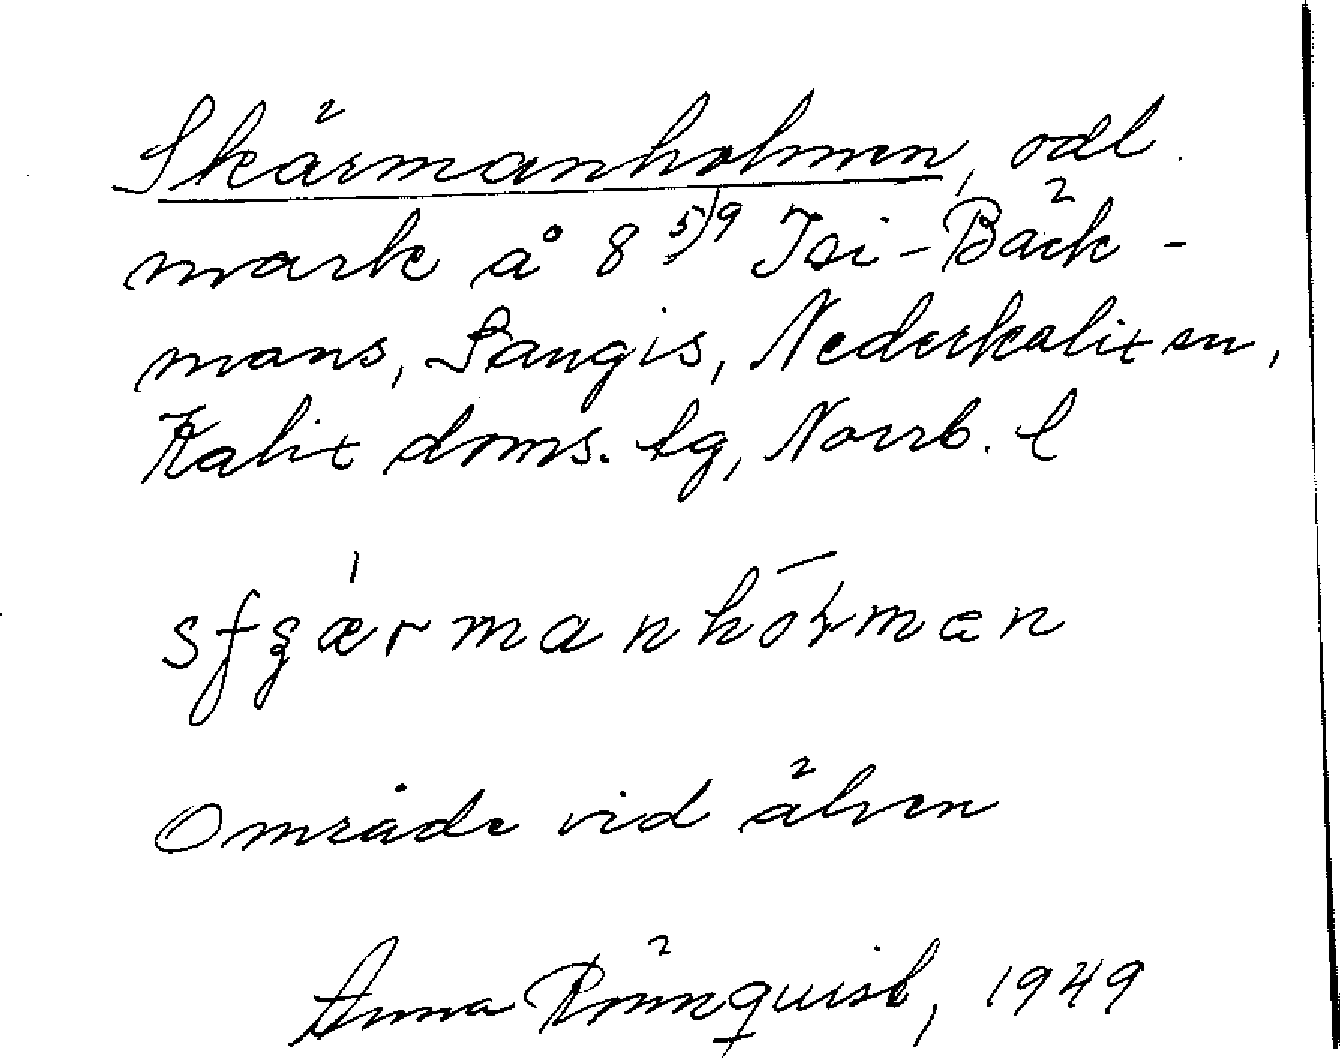 Skärmanholmen, odl.
mark å 8 5/9 Isi-Bäck-
mans, Sangis, Nederkalix sn,
Kalix doms. tg, Norrb. l
Område vid älven
Anna Rönnquist, 1949